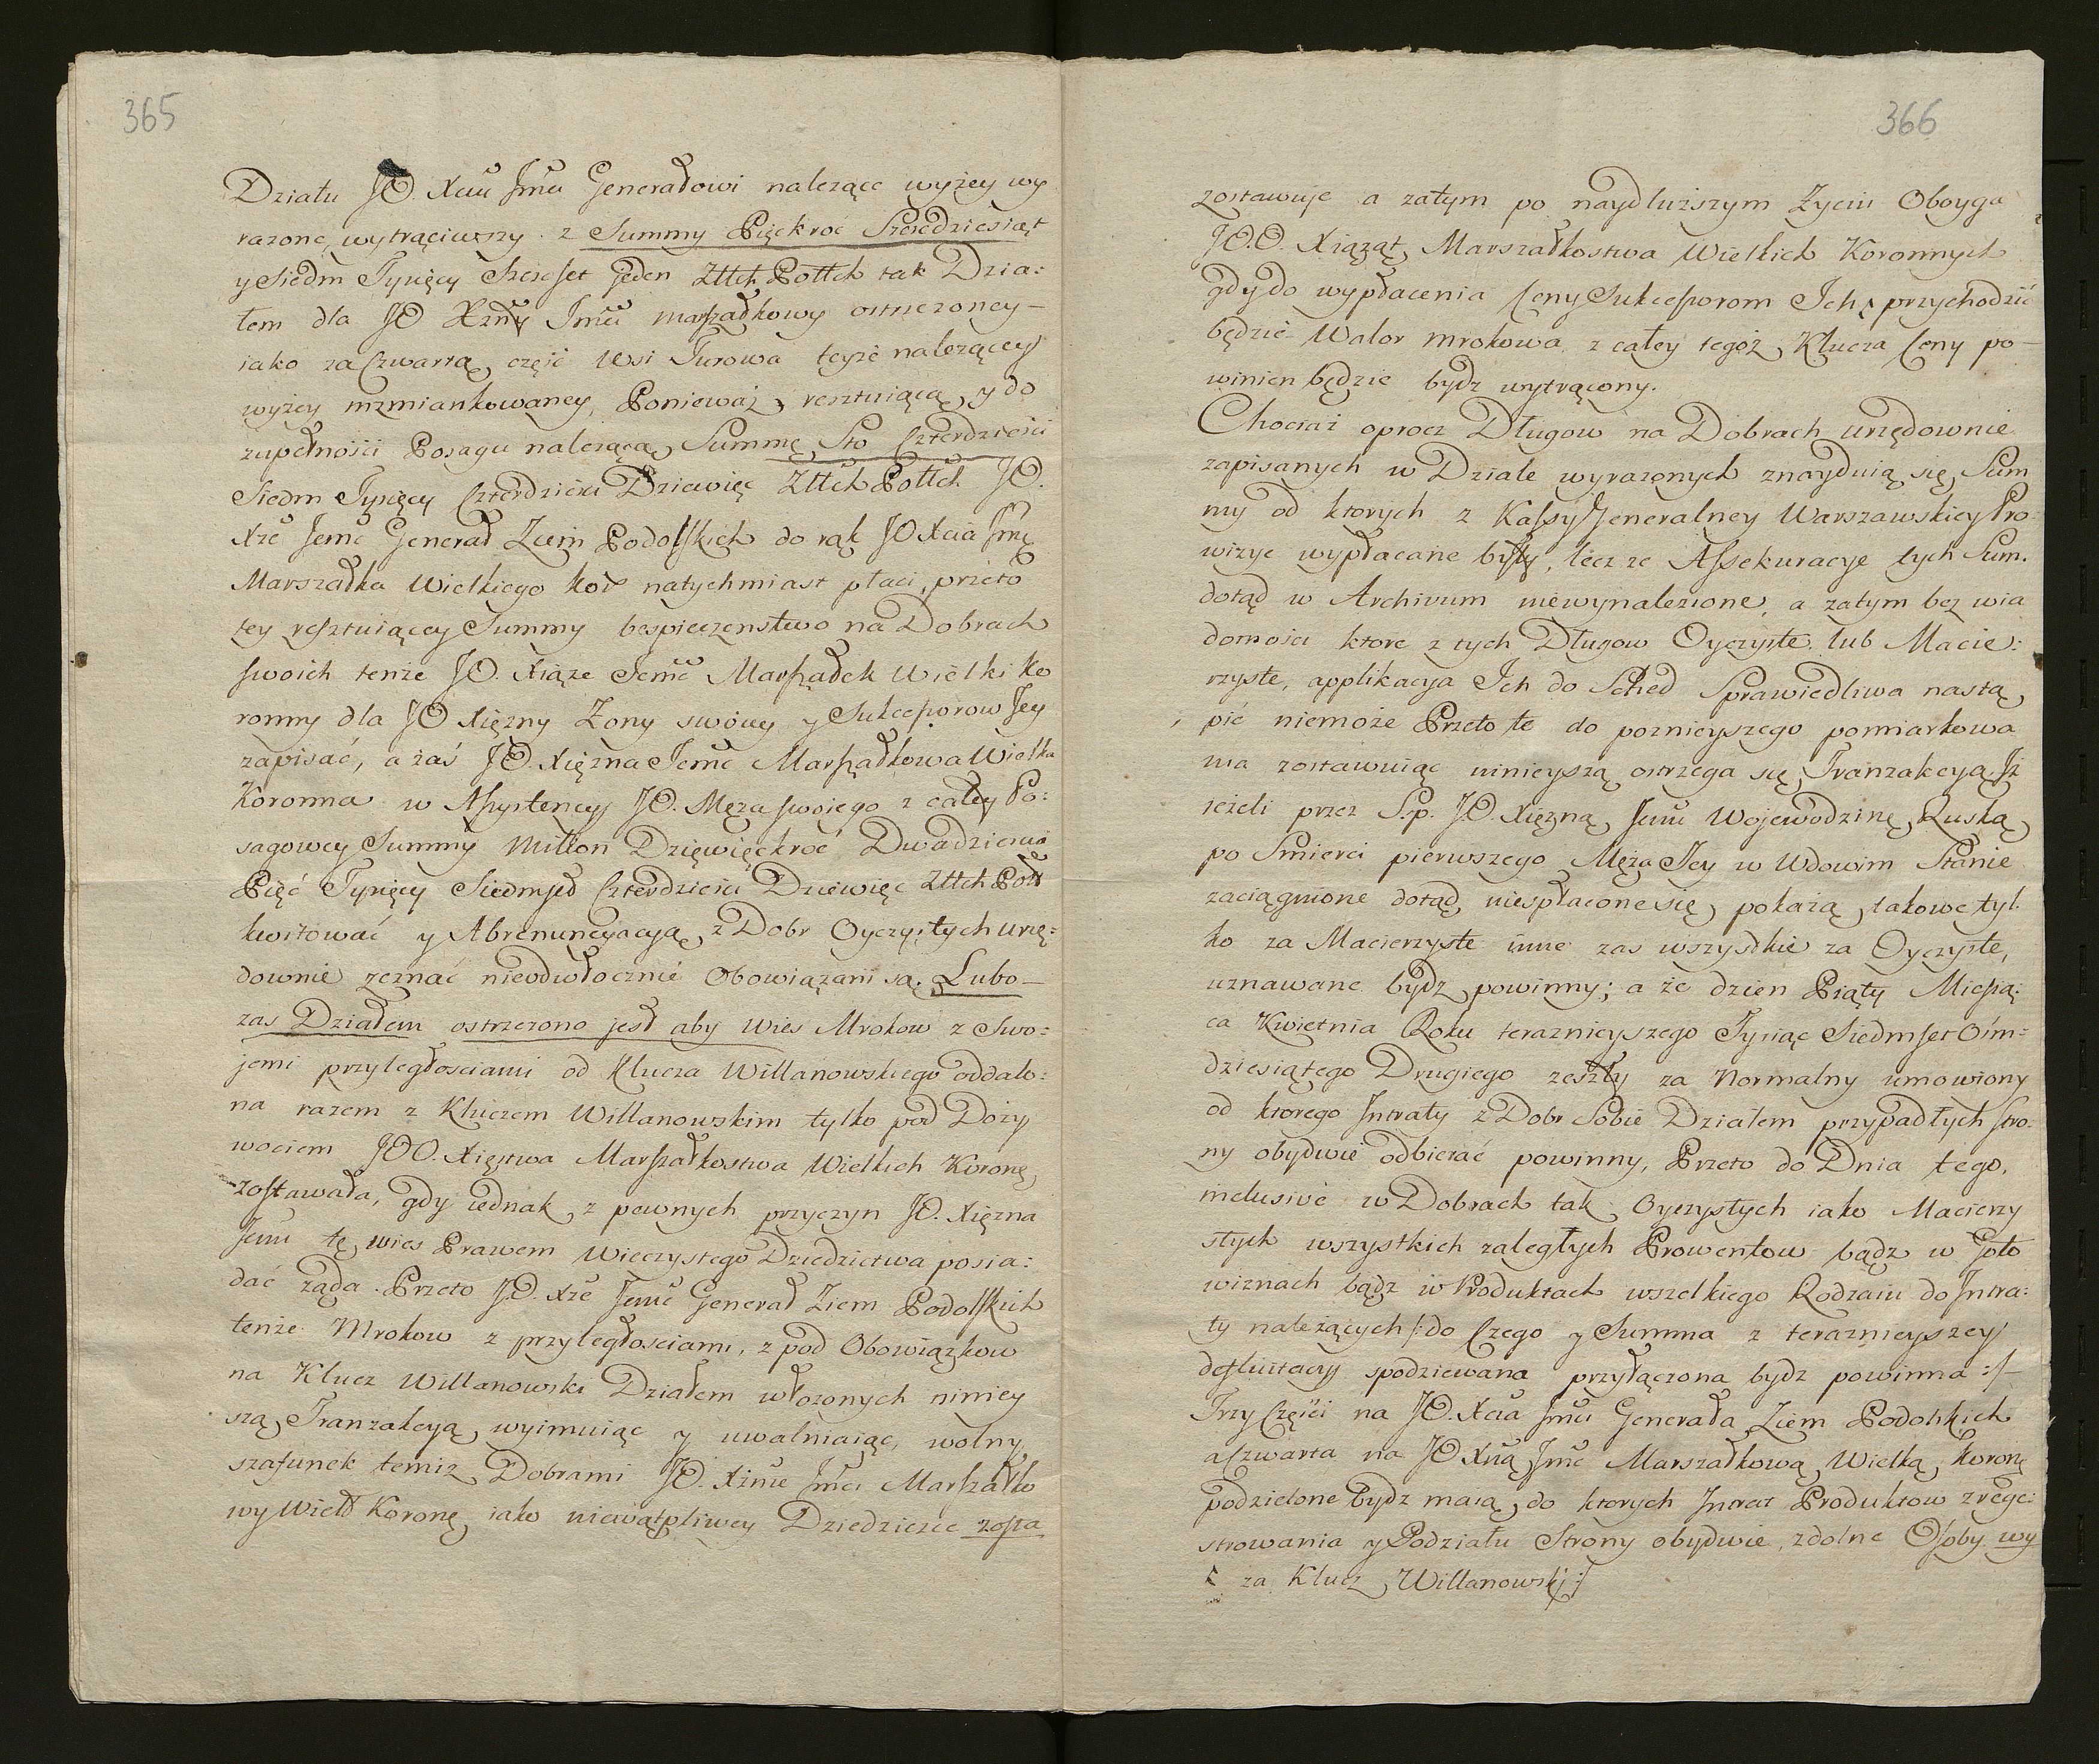 365
Działu JO. Xciu Jmci Generałowi należące wyżey wy
rażone, wytrąciwszy z Summy Pięckroć Sześcdziesiąt
y Siedm Tysięcy Sześcset jeden Złłch Polłch tak Dzia:
łem dla JO Xzny Jmci marszałkowy ostrzeżoney –
iako za Czwartą część Wsi Turowa teyże należącey
wyżey mzmiankowaney, Ponieważ resztuiącą y do
zupełności Posagu należącą Summę Sto Czterdzieści
Siedm Tysięcy Czterdzieści Dziewięc Złłch Polłch JO.
Xże Jemć Generał Ziem Podolskich do rąk JO Xcia Jmć
Marszałka Wielkiego Kor natychmiast płaci, przeto
tey resztuiącey Summy bespieczenstwo na Dobrach
swoich tenże JO. Xiąże Jemć Marszałek Wielki Ko
ronny dla JO Xiężny Zony swoiey y Sukcessorow Jey
zapisać, a zaś JO. Xiężna Jemć Marszałkowa Wielka
Koronna w Assystencyi JO. Męża swoiego z całey Po:
sagowey Summy Millon Dziewięckroć Dwadziescia
Pięć Tysięcy Siedmset Czterdzieści Dziewięc Złłch Polł
kwitować y Abrenuncyacyą z Dobr Oyczystych urzę:
downie zeznać nieodwłocznie Obowiązani są. Lubo –
zas Działem ostrzeżono jest aby Wies Mrokow z Swo:
jemi przyległosciami od Klucza Willanowskiego oddalo:
na razem z Kluczem Willanowskim tylko pod Doży
wociem JOO. Xięstwa Marszałkostwa Wielkich Koronę,
zostawała, gdy iednak z pewnych przyczyn JO. Xiężna
Jemć tę wies Prawem Wieczystego Dziedzictwa posia:
dać żąda. Przeto JO. Xże Jemć Generał Ziem Podolskich
tenże Mrokow z przyległosciami, z pod Obowiązkow
na Klucz Willanowski Działem włożonych niniey
szą Tranzakcyą wyimuiąc y uwalniaiąc, wolny
szafunek temiż Dobrami JO. Xżnie Jmci Marszałko
wy Wielł Koronę iako niewątpliwey Dziedziczce zosta
366
zostawuje a zatym po naydłuższym Życiu Oboyga
JO.O. Xiążąt Marszałkostwa Wielkich Koronnych
gdy do wypłacenia Ceny Sukcessorom Ich przychodzić
będzie Walor mrokowa z całey tegoż Klucza Ceny po –
winien będzie bydz wytrącony.
Chociaż oprocz Długow na Dobrach urzędownie
zapisanych w Dziale wyrażonych znayduią się Sum
my od ktorych z Kassy Generalney Warszawskiey Pro:
wizye wypłacane były, lecz że Assekuracye tych Sum.
dotąd w Archivum niewynalezione, a zatym bez wia
domości ktore z tych Długow Oyczyste lub Macie:
rzyste, applikacya Ich do Sched Sprawiedliwa nastą
pić niemoże Przeto te do poznieyszego pomiarkowa
nia zostawuiąc ninieyszą ostrzega się Tranzakcyą Jż
ieżeli przez S.p. JO. Xiężną Jemć Wojewodzinę Ruską
po Smierci pierwszego Męża Jey w Wdowim Stanie
zaciągnione dotąd niespłacone się pokażą, takowe tyl.
ko za Macierzyste inne zas wszystkie za Oyczyste,
uznawane bydz powinny; a że dzien Piąty Miesią:
ca Kwietnia Roku teraznieyszego Tysiąc Siedmset Ośm=
dziesiątego Drugiego zeszły za Normalny umowiony
od ktorego Intraty z Dobr Sobie Działem przypadłych Stro:
ny obydwie odbierać powinny, Przeto do Dnia tego,
inclusivè w Dobrach tak Oyczystych iako Macierzy
stych wszystkich zaległych Prowentow bądz w Goto
wiznach bądz w Produktach wszelkiego Rodzaiu do Intra:
ty należących /: do Czego y Summa z teraznieyszey
defluitacyi spodziewana przyłączona bydz powinna :/ –
Trzy Części na JO. Xcia Jmci Generała Ziem Podolskich
a Czwarta na JO Xną Jmć Marszałkową Wielką Koronę
podzielone bydz maią, do ktorych Intrat Produktow zrege:
strowania y Podziału Strony obydwie, zdolne Osoby wy
za Klucz Willanowski :/